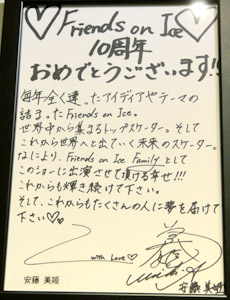 Friends on Ice
10周年
おめでとうございます!!
毎年全く違ったアイディアやテーマの
詰まったFriends on Ice.
世界中から集まるトップスケーター。そして
これから世界へと出ていく未来のスケーター。
なにより、Friends on Ice Familyとして
このショーに出演させて頂ける幸せ!!!
これからも輝き続けて下さい。
そして、これからもたくさんの人に夢を届けて
下さい♡♡
with Love♡
安藤 美姫
安藤 美姫